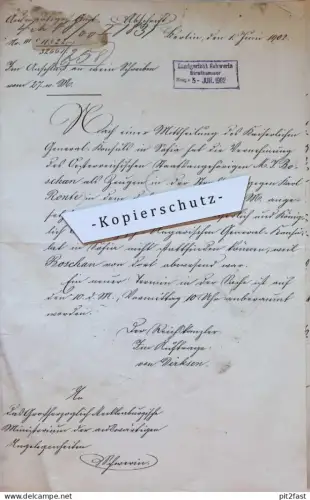 Auswärtiges Amt. Abschrift
Berlin, den 6. Juni 1902.
No. III
Im Anschluß an das Schreiben
vom 27. v. M.
Landgericht Schwerin
Strafkammer
Eing. 8 - JUN. 1902
Nach einer Mittheilung des Kaiserlichen
General-Konsuls in Sofia hat die Vernehmung
des Österreichischen Staatsangehörigen
Boschan als Zeugen in der gegen Karl
Ronte in dem
-Kopierschutz-
und König-
lich Ungarischen General-Konsu-
lat in Sofia nicht stattfinden können, weil
Boschan von dort abwesend war.
Ein neuer Termin in der Sache ist auf
den 10. d. M., Vormittag 10 Uhr anberaumt
worden.
Der Reichskanzler
Im Auftrage
von Dirksen.
An
das Großherzoglich Mecklenburgische
Ministerium der auswärtigen
Angelegenheiten
Schwerin.
© pit2fast